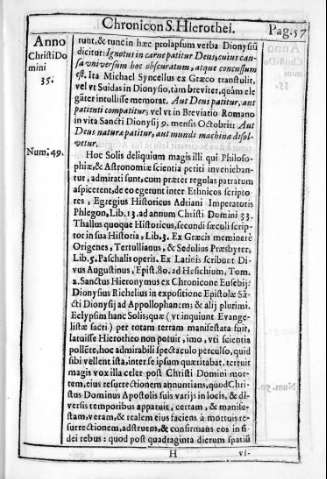 Chronicon S. Hierothei.
Pag. 57
Anno
Christi Do
mini
35.
runt, & tunc in hæc prolapsum verba Dionysiũ
dicitur: Ignotus in carne patitur Deus, cuius cau-
sa vniuersum hoc obscuratum, atque concussum
est. Ita Michael Syncellus ex Græco transtulit,
vel vt Suidas in Dionysio, tàm breviter, quàm ele
gãter intellisse memorat. Aut Deus patitur, aut
patienti compatitur; vel vt in Breviario Romano
in vita Sancti Dionysij 9. mensis Octobris: Aut
Deus naturæ patitur, aut mundi machina dissol-
vetur.
Num. 49.
Hoc Solis deliquium magis illi qui Philoso-
phiæ, & Astronomiæ scientia periti invenieban-
tur, admirati sunt, cum præter regulas patratum
aspicerent, de eo egerunt inter Ethnicos scripto
res, Egregius Historicus Adriani Imperatoris
Phlegon, Lib. 13. ad annum Christi Domini 33.
Thallus quoque Historicus, secundi sæculi scrip-
tor in sua Historia, Lib. 3. Ex Græcis meminere
Origenes, Tertullianus, & Sedulius Præsbyter,
Lib. 5. Paschalis operis. Ex Latinis scribunt Di-
vus Augustinus, Epist. 80. ad Hesichium, Tom.
2. Sanctus Hieronymus ex Chronicone Eusebij:
Dionysius Richelius in expositione Epistolæ Sã-
cti Dionysij ad Apollophanem; & alij plurimi.
Eclypsim hanc Solis, quæ (vt inquiunt Evange-
listæ sacri) per totam terram manifestata fuit,
latuisse Hierotheo non potuit, imo, vti scientia
pollẽre, hoc admirabili spectaculo perculso, quid
sibi vellent ista, inter se ipsum quæritabat. tertuit
magis vox illa celer post Christi Domini mor-
tem, eius resurrectionem annuntians, quòd Chri-
stus Dominus Apostolis suis varijs in locis, & di-
versis temporibus apparuit, certam, & manife-
stam, veram, & realem eius faciens à mortuis re-
surrectionem, adstruens, & confirmans eos in fi
dei rebus: quod post quadraginta dierum spatiũ
H
vi-